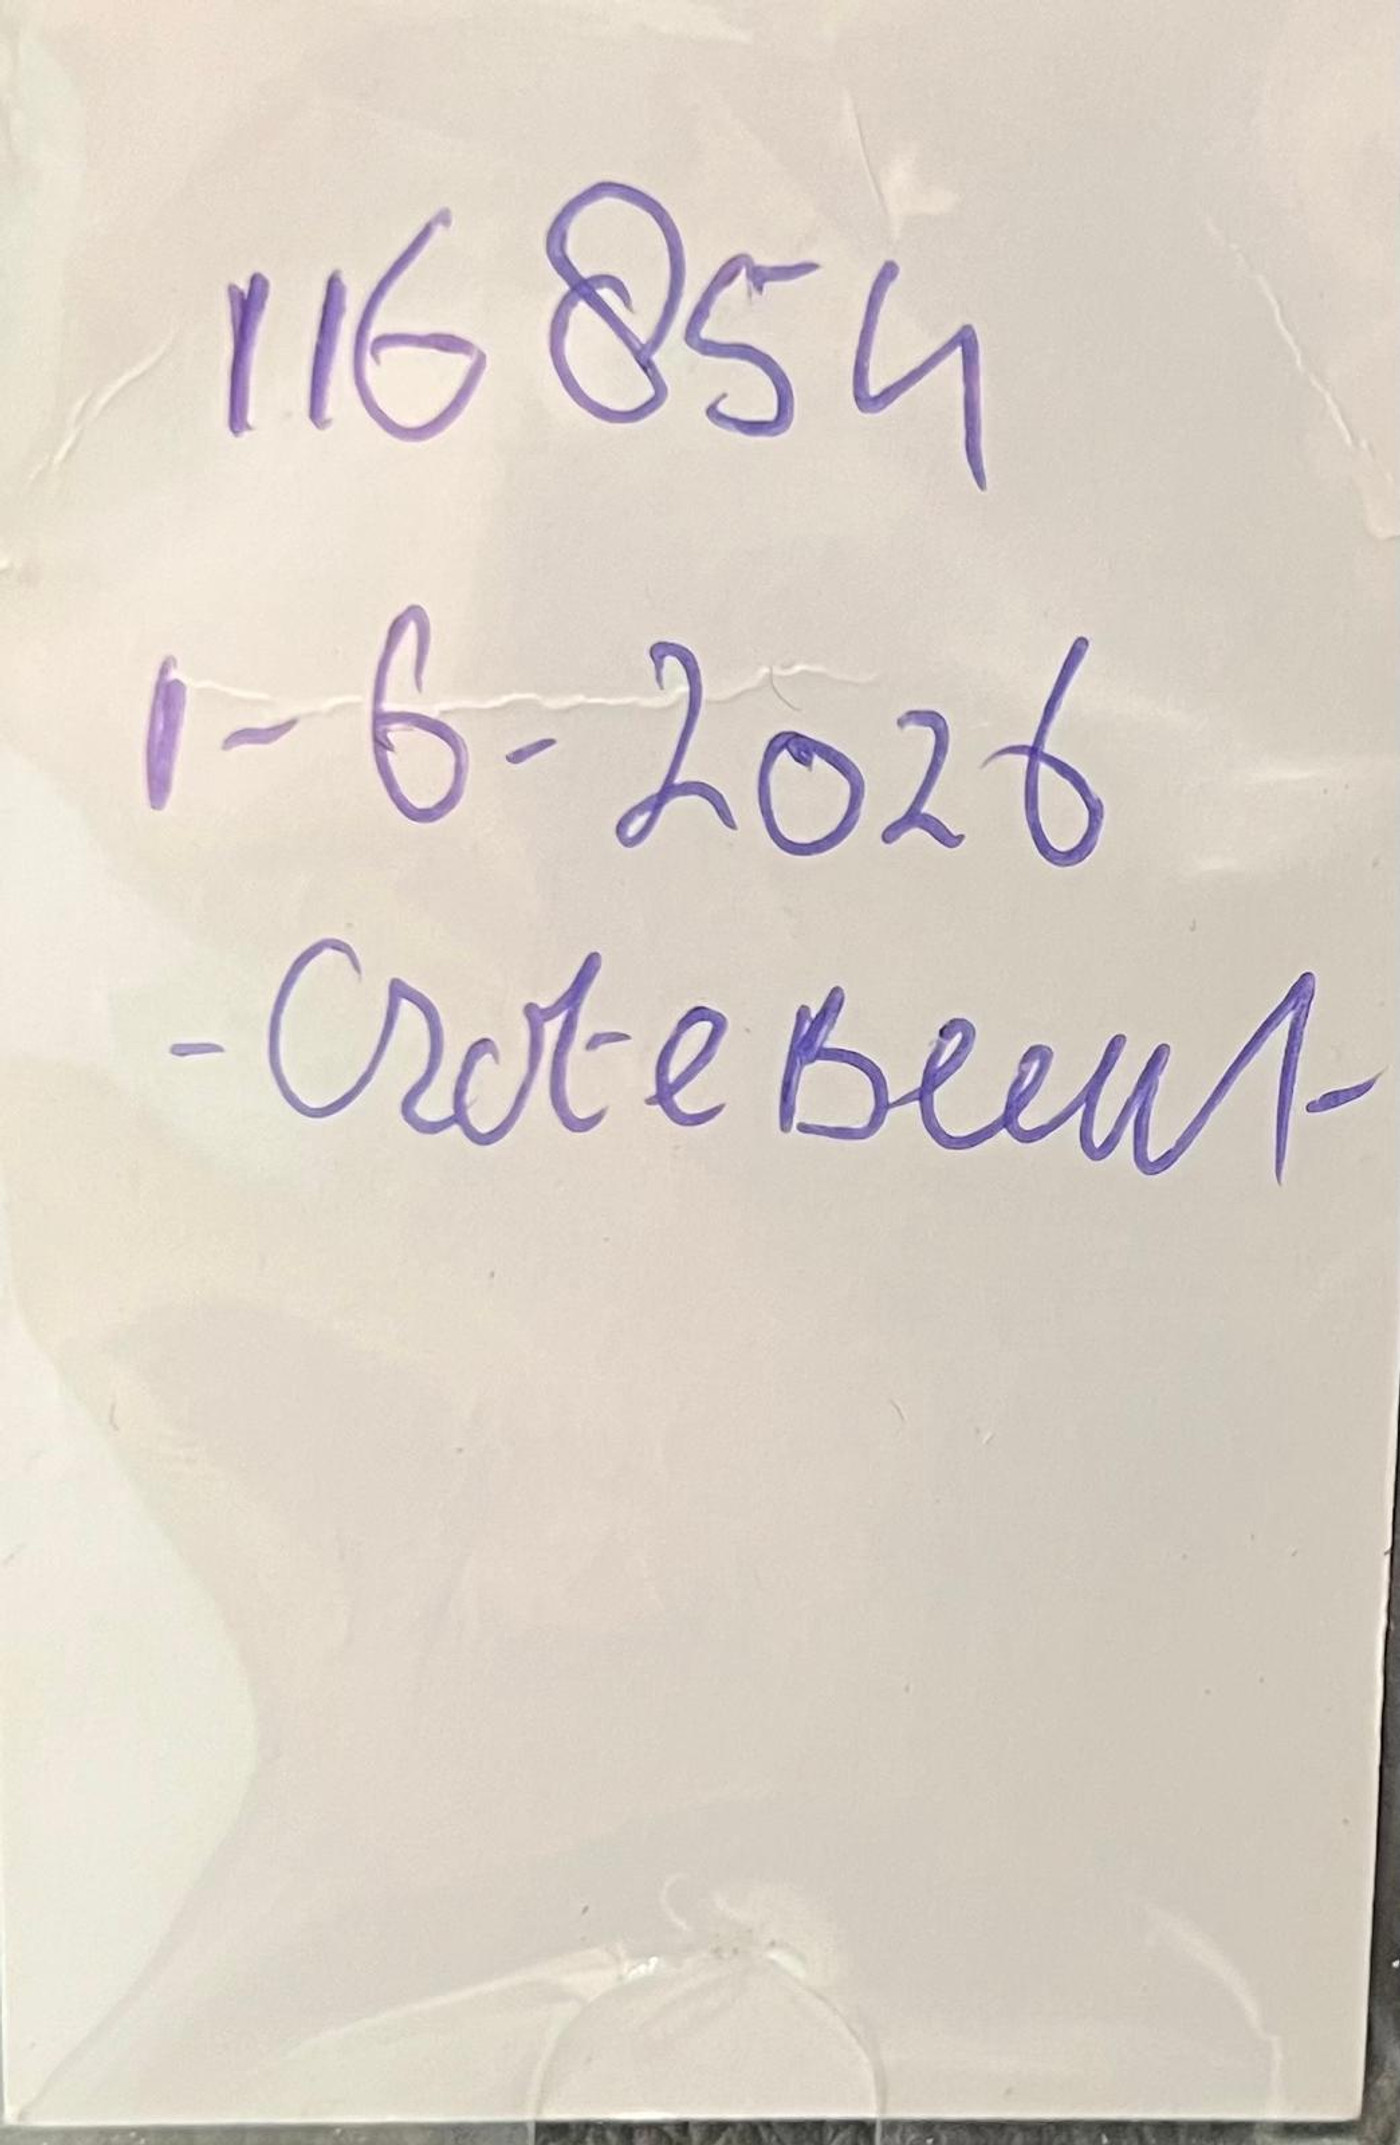 116854
1-6-2026
-Grote Beurt-